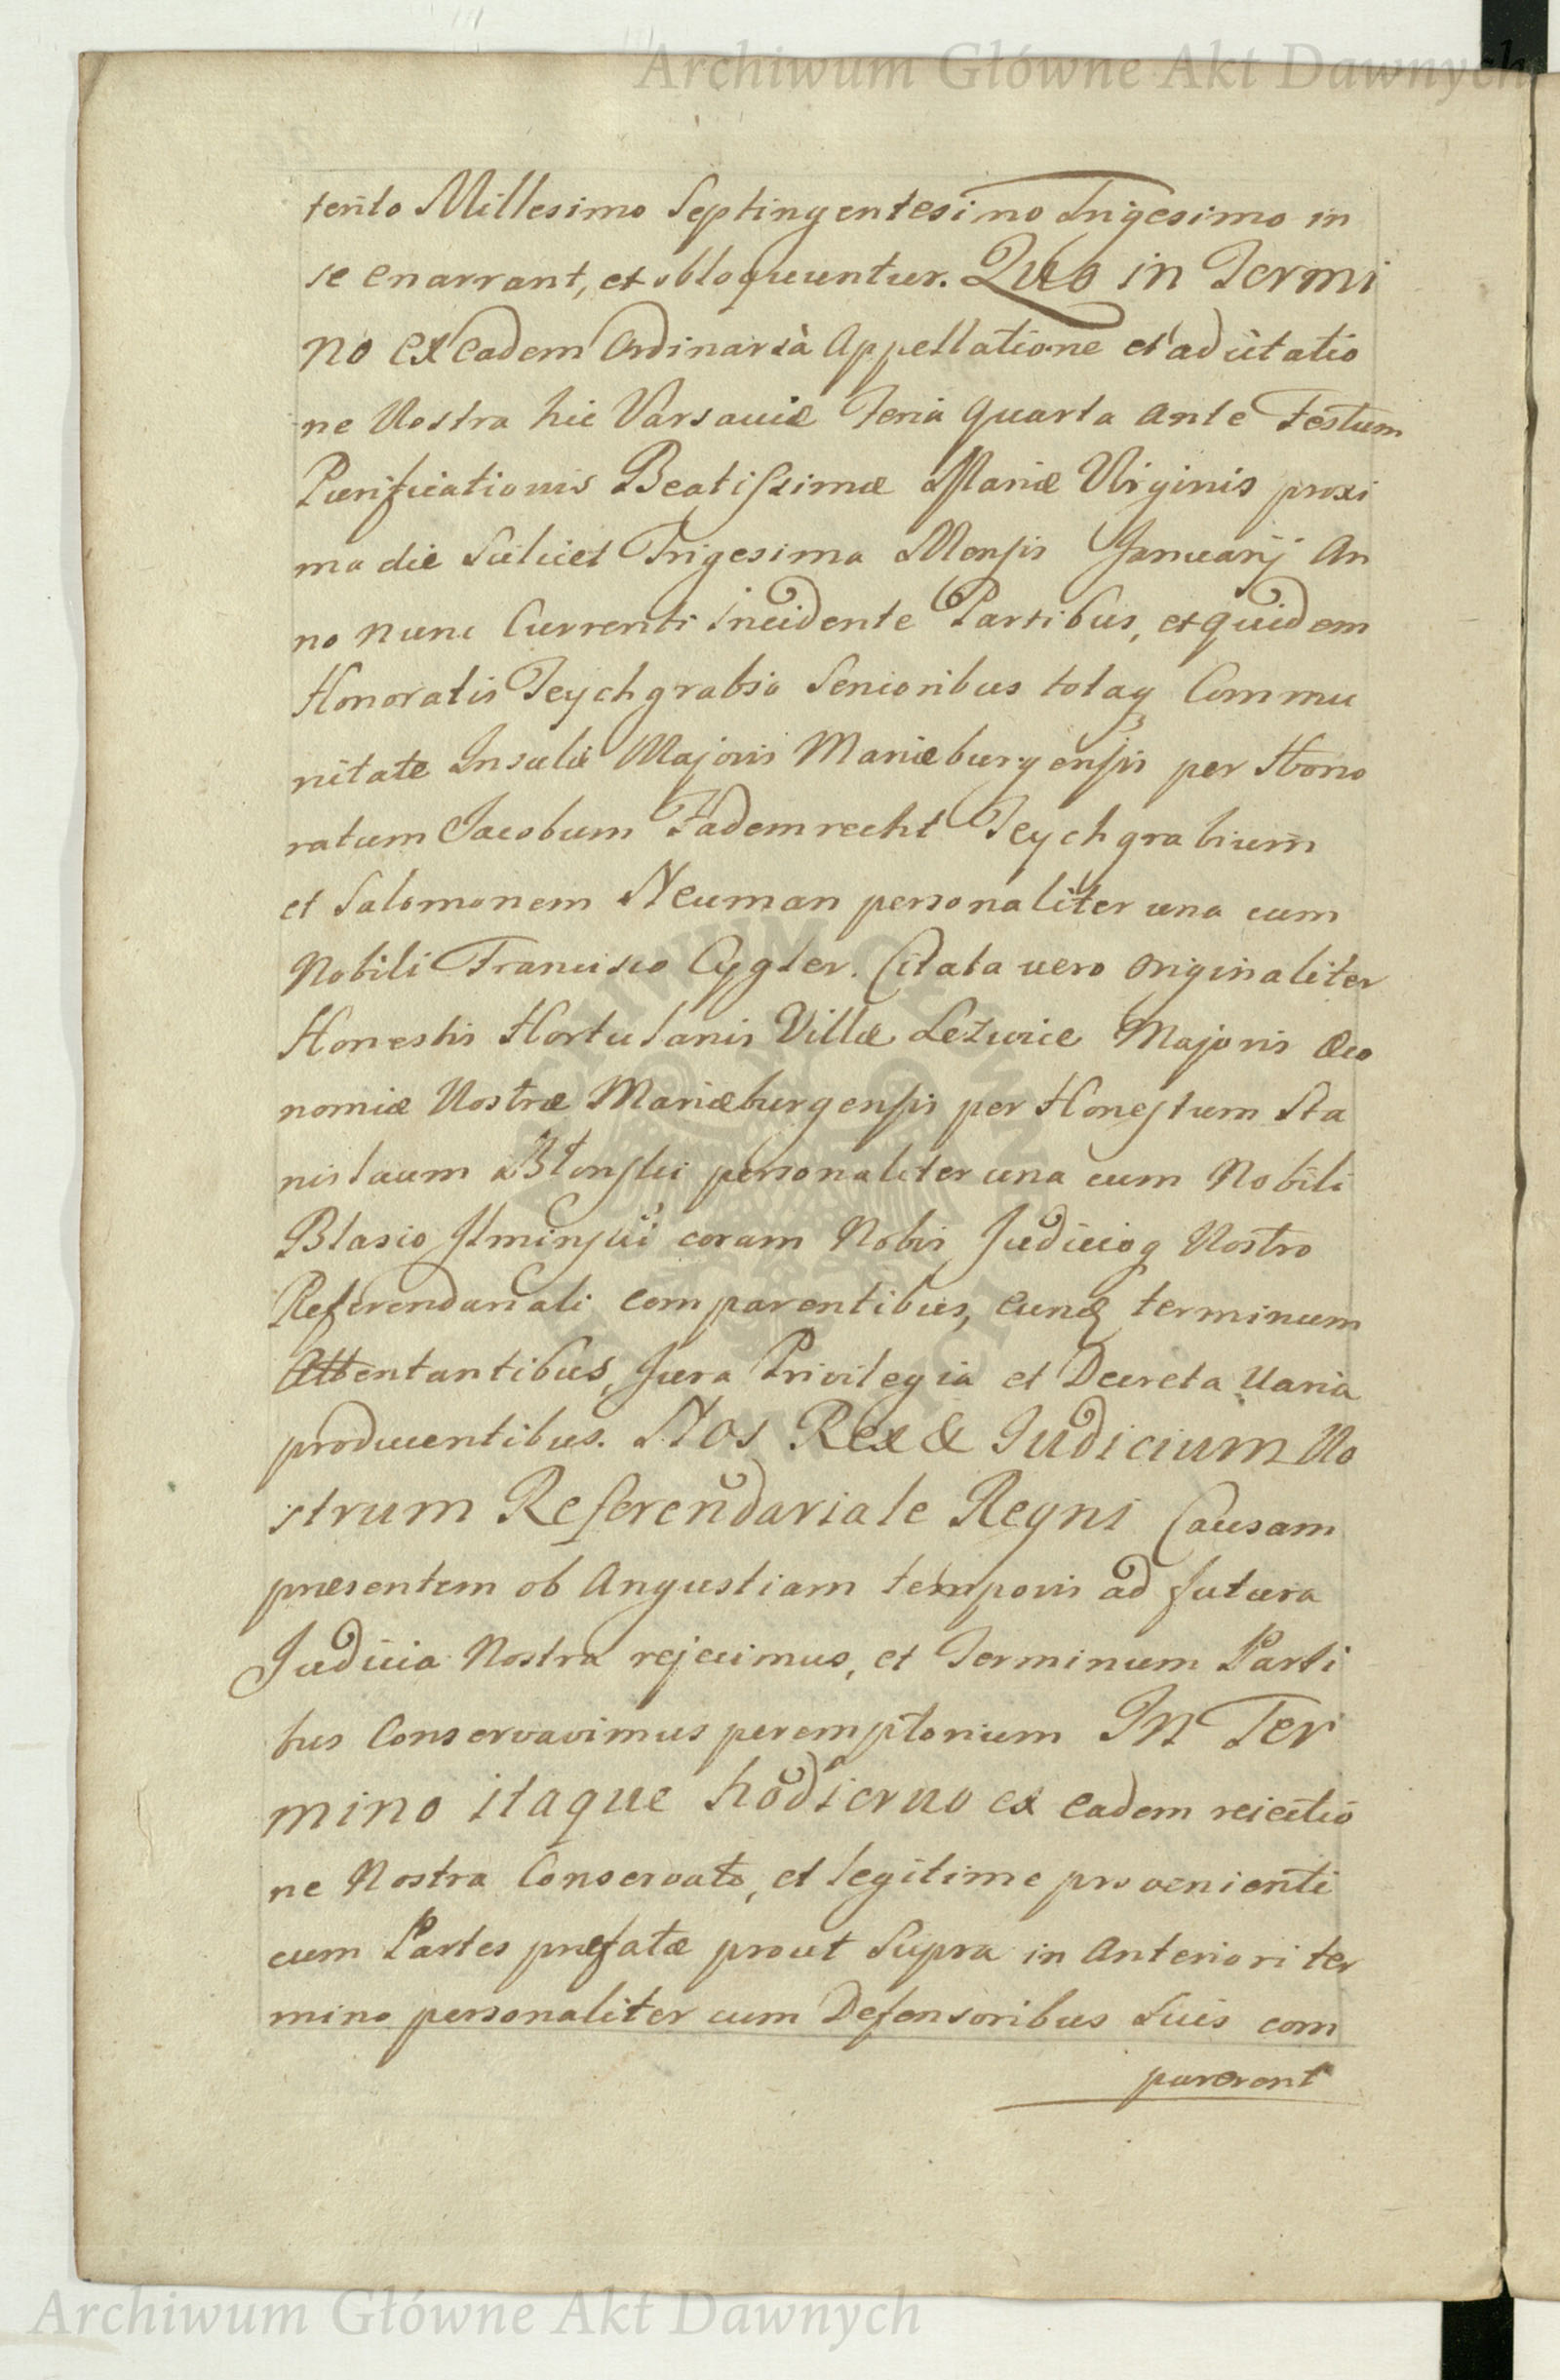 Archiwum Główne Akt Dawnych
terito Millesimo Septingentesimo Trigesimo in
se enarrant, et obloquuntur. Quo in Termi
no ex eadem Ordinaria Appellatione et adcitatio
ne Nostra hic Varsaviæ Feria Quarta Ante Festum
Purificationis Beatissimæ Mariæ Virginis proxi
ma die Scilicet Trigesima Mensis Januarij An
no nunc Currenti incidente Partibus, et quidem
Honoratis Teychgrabio Senioribus totaq Commu
nitate Insulæ Majoris Mariæburgensis per Hono
ratum Jacobum Fademrecht Teychgrabium
et Salomonem Neuman personaliter una cum
Nobili Francisco Cygler. Citata vero Originaliter
Honestis Hortulanis Villæ Lezwice Majoris Œco
nomiæ Nostræ Mariæburgensis per Honestum Sta
nislaum Błonski personaliter una cum Nobili
Blasio Ilminski coram Nobis Judicioq Nostro
Referendariali comparentibus, eunq terminum
Attentantibus, Jura Privilegia et Decreta Varia
producentibus. Nos Rex & Judicium No
strum Referendariale Regni Causam
præsentem ob Angustiam temporis ad futura
Judicia Nostra rejecimus, et Terminum Parti
bus Conservavimus peremptorium In Ter
mino itaque hodierno ex eadem reiectio
ne Nostra Conservato, et legitime provenienti
cum Partes præfatæ prout Supra in Anteriori ter
mino personaliter cum Defensoribus Suis com
parerent
Archiwum Główne Akt Dawnych